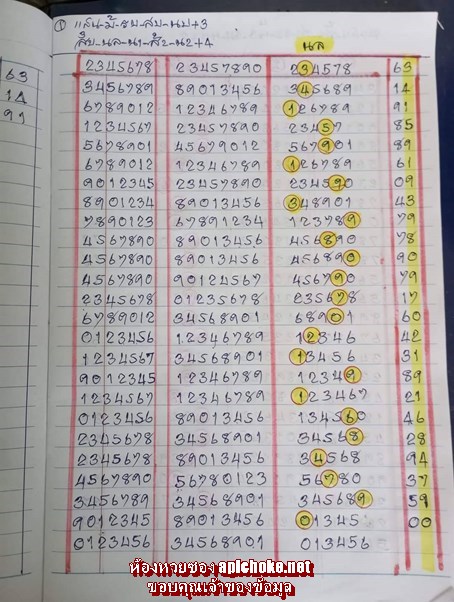 ① แสน-ม้-รบ-สบ-นบ+3
สิบ-นล-น1-ส้ว-น2+4
นล
63
14
91
2345678 23457890 234578 63
3456789 89013456 345689 14
6789012 12346789 126789 91
1234567 23457890 23457 85
5678901 45679012 567901 89
6789012 12346789 126789 61
9012345 23457890 234590 09
8901234 89013456 348901 43
7890123 67891234 123789 79
4567890 89013456 456890 78
4567890 89013456 456890 90
4567890 90124567 456790 79
2345678 01235678 235678 17
6789012 34568901 68901 60
0123456 12346789 12346 42
1234567 34568901 13456 31
9012345 12346789 12349 89
1234567 12346789 123467 21
0123456 89013456 134560 46
2345678 34568901 34568 28
2345678 89013456 34568 94
4567890 56780123 56780 37
3456789 34568901 345689 59
9012345 89013456 01345 00
0123456 34568901 013456
ห้องหวยซอง apichoke.net
ขอบคุณเจ้าของข้อมูล